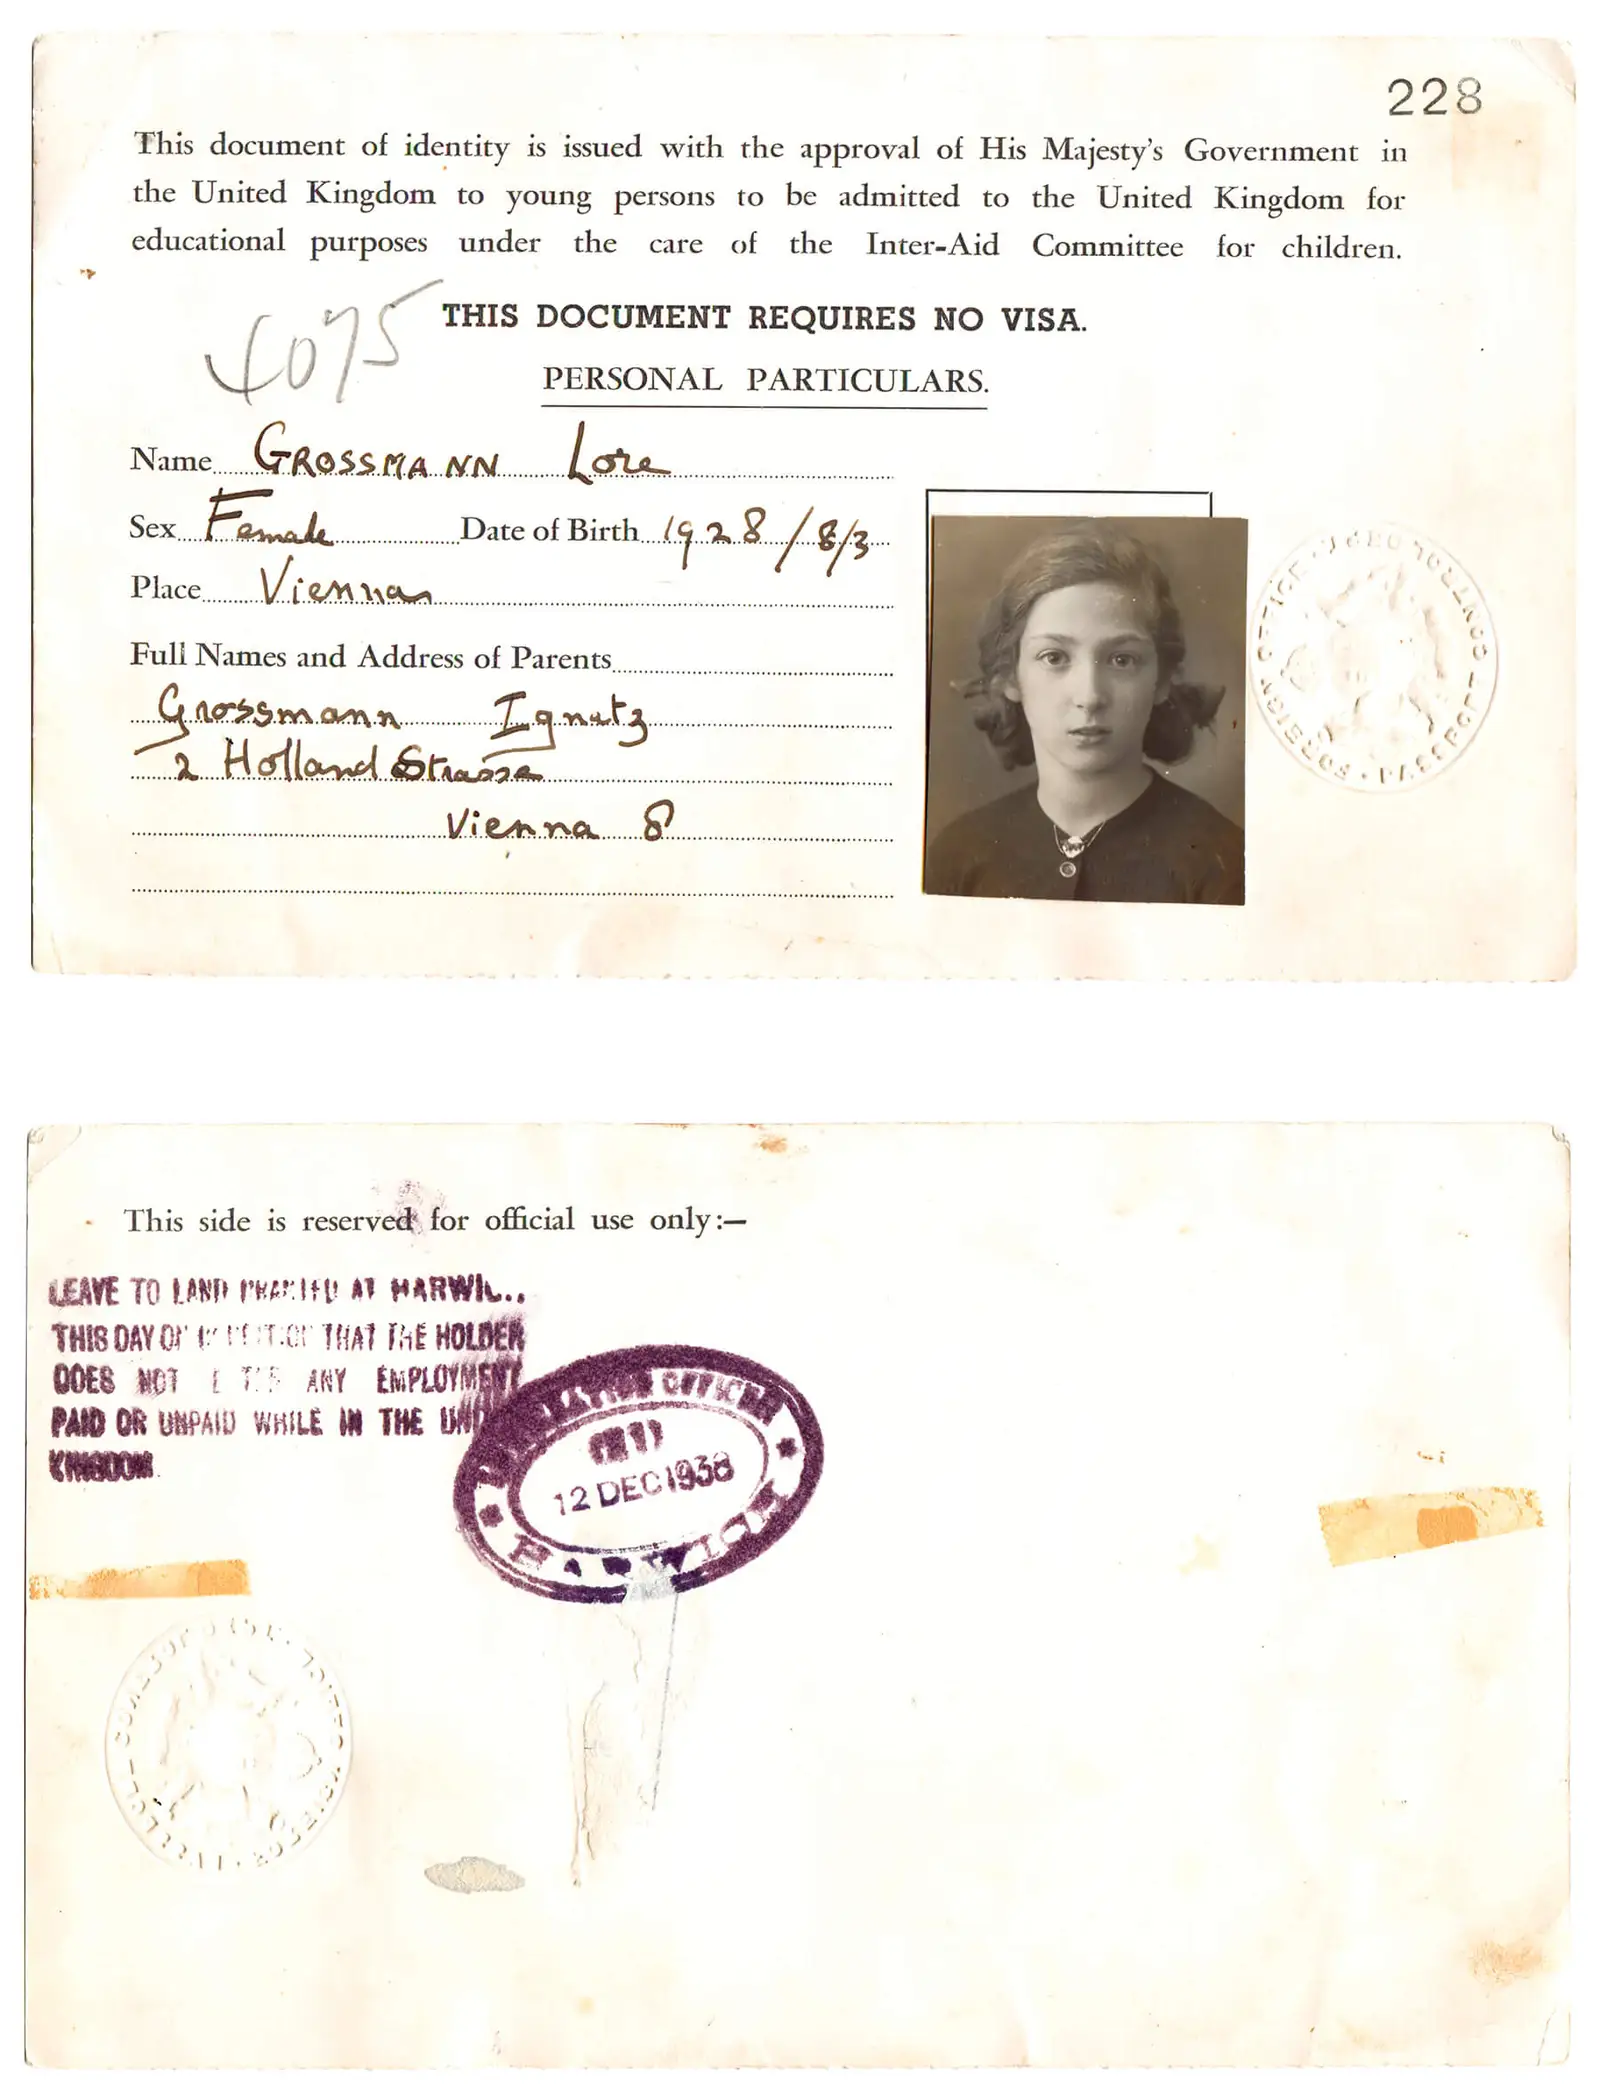 228
This document of identity is issued with the approval of His Majesty's Government in
the United Kingdom to young persons to be admitted to the United Kingdom for
educational purposes under the care of the Inter-Aid Committee for children.
4075
THIS DOCUMENT REQUIRES NO VISA.
PERSONAL PARTICULARS.
Name GROSSMANN Lore
Sex Female Date of Birth 1928/8/3
Place Vienna
Full Names and Address of Parents
Grossmann Ignatz
2 Holland Strasse
Vienna 8
FOREIGN OFFICE PASSPORT CONTROL
This side is reserved for official use only:—
LEAVE TO LAND AT
THIS DAY THAT THE HOLDER
DOES NOT ANY EMPLOYMENT
PAID OR UNPAID WHILE IN THE
KINGDOM.
OFFICER
12 DEC 1938
HARWICH